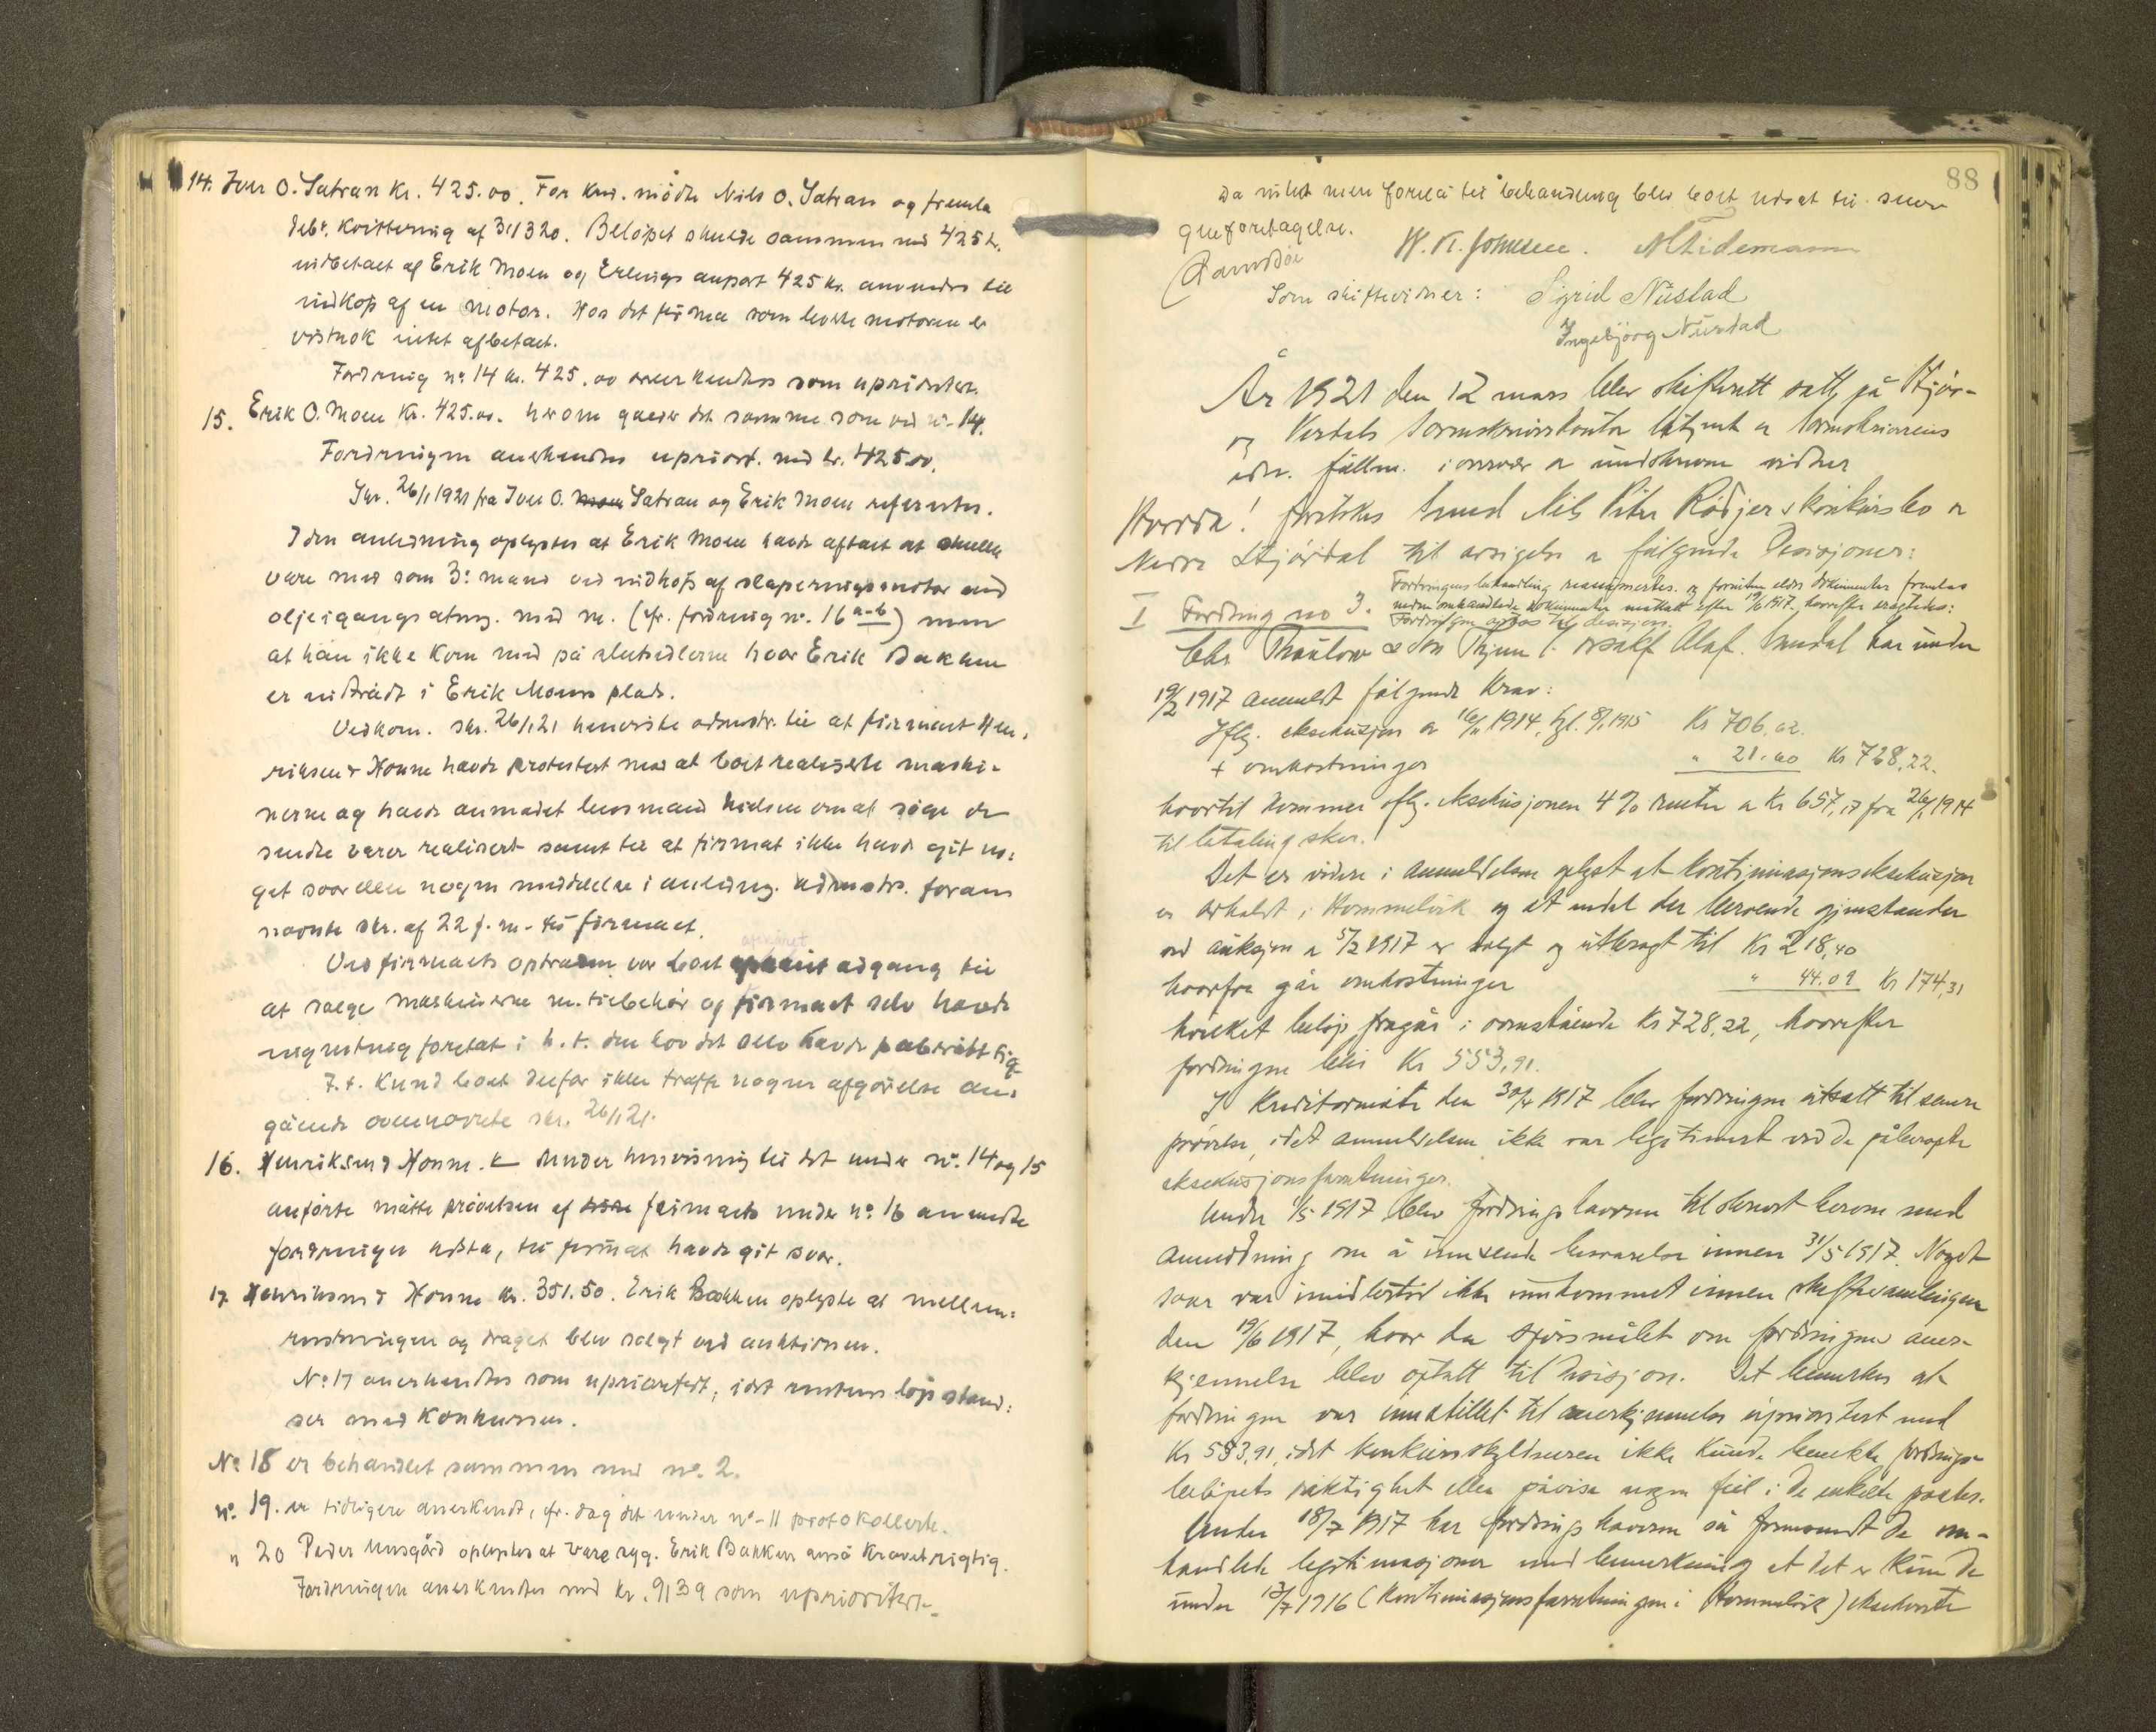 14. Iver O. Satran Kr. 425.00. For krd. mödte Nils O. Satran og fremla
debr. kvittering af 31/3 20. Belöpet skulde sammen med 425 kr.
indbetalt af Erik Moen og Erlings anpart 425 kr. anvendes til
indkop af en motor. Hos det firma som leverte motoren er
vistnok intet afbetalt.
Fordring no 14 kr. 425.00 anerkendtes som uprioritert.
15. Erik O. Moen Kr. 425.00. herom gjælder det samme som ved no 14.
Fordringen anerkendtes upriort. med kr. 425.00.
Skr. 26/1 1921 fra Iver O. Satran og Erik Moen refertes.
I den anledning oplystes at Erik Moen havde aftalt at skulle
være med som 3: mand ved indkop af slaperingsmotor med
oljeigangsætng. med m. (cfr. fordring no. 16 a-b) men
at han ikke kom med på slutsedlerne hvor Erik Bakken
er indtrådt i Erik Moens plads.
Vedkom. skr. 26/1 21 henviste admstr. til at firmaet Hen-
riksen & Honne havde protestert mod at boet realiserte maski-
nerne og havde anmodet lensmand Nielsen om at söge de
sendte varer realisert samt til at firmaet ikke havde git no-
get svar eller nogen meddelelse i anledng. admstr. foran
nævnte skr. af 22 f. m. til firmaet.
Ved firmaets optræden var boet afskåret adgang til
at sælge maskinerne m. tilbehör og firmaet selv havde
ingenting foretat i h. t. den lov det selv havde påberåbt sig
F. t. kund boet derfor ikke træffe nogen afgörelse an-
gående ovennævnte skr. 26/1 21.
16. Henriksen & Honne. Under henvisning til det under no. 14 og 15
anförte måtte prövelsen af firmaets under no 16 anmeldte
fordringer utstå, til firmaet havde git svar.
17 Henriksen & Honne kr. 351.50. Erik Bakken oplyste at mellem-
redningen og draget blev solgt ved auktionen.
No 17 anerkendtes som uprioritert, idet rentens löp stand-
ser med konkursen.
No 18 er behandlet sammen med no. 2.
no. 19. er tidligere anerkendt, cfr. dag det under no 11 protokollerte.
" 20 Peder Musgård oplystes at være ryg. Erik Bakken anså kravet rigtig.
Fordringen anerkendtes med kr. 9139 som uprioritert.
88
Da intet mere forelå til behandling blev boet udsat til senere
gjenforetagelse.
W. K. Johnsen. N Tidemann
Som skiftevidner: Sigrid Nustad
Ingebjörg Nustad
År 1921 den 12 mars blev skifterett satt på Stjör-
og Verdals sorenskriverkontor betjent av sorenskriverens
edsv. fullm. i overvær av undskrevne vidner
Hvorda! foretokes Smed Nils Peter Rödjers konkursbo av
Nedre Stjördal til avsigelse av fölgende Desisjoner:
Fordringens behandling reassumertes. og foruten eldre dokumenter fremlas
nedenomhandlede dokumenter mottatt efter 19/6 1917. hvorefter eragtedes:
I Fordring no 3. Fordringen optas til desisjon.
Chr Thaulow & Sön Thjem v. orsakf. Olaf. Sundal har under
19/2 1917 anmeldt fölgende Krav:
Iflg. eksekusjon av 16/11 1914, tgl. 8/1 1915 Kr 706,62.
+ omkostninger " 21.60 Kr 728,22.
hvortil kommer iflg. eksekusjonen 4% renter av Kr 657,17 fra 26/1 1914
til betaling sker.
Det er videre i anmeldelsen oplyst at kontinuasjonseksekusjon
er avholdt i Hommelvik og at endel der beroende gjenstander
ved auksjon av 5/2 1917 er solgt og utbragt til Kr 218,40
hvorfra går omkostninger " 44.09 Kr 174,31
hvilket belöp fragår i ovenstående Kr 728,22, hvorefter
fordringen blir Kr 553,91.
I Kreditormöte den 30/4 1917 blev fordringen utsatt til senere
prövelse, idet anmeldelsen ikke var legitimert ved de påberopte
eksekusjonsforretninger.
Under 1/5 1917 blev fordringshaveren tilskrevet herom med
anmodning om å innsende besvarelse innen 31/5 1917. Noget
svar var imidlertid ikke innkommet innen skiftesamlingen
den 19/6 1917, hvor da spörsmålet om fordringens aner-
kjennelse blev optatt til desisjon. Det bemerkes at
fordringen var innstillet til anerkjennelse upriortert med
Kr 553,91, idet konkursskyldneren ikke kunde benekte fordrings-
belöpets riktighet eller påvise nogen feil i de enkelte poster.
Under 18/7 1917 har fordringshaveren så fremsendt de om-
handlede legitimasjoner med bemerkning at det er kun de
under 13/7 1916 (kontinuasjonsforretningen i Hommelvik) eksekverte